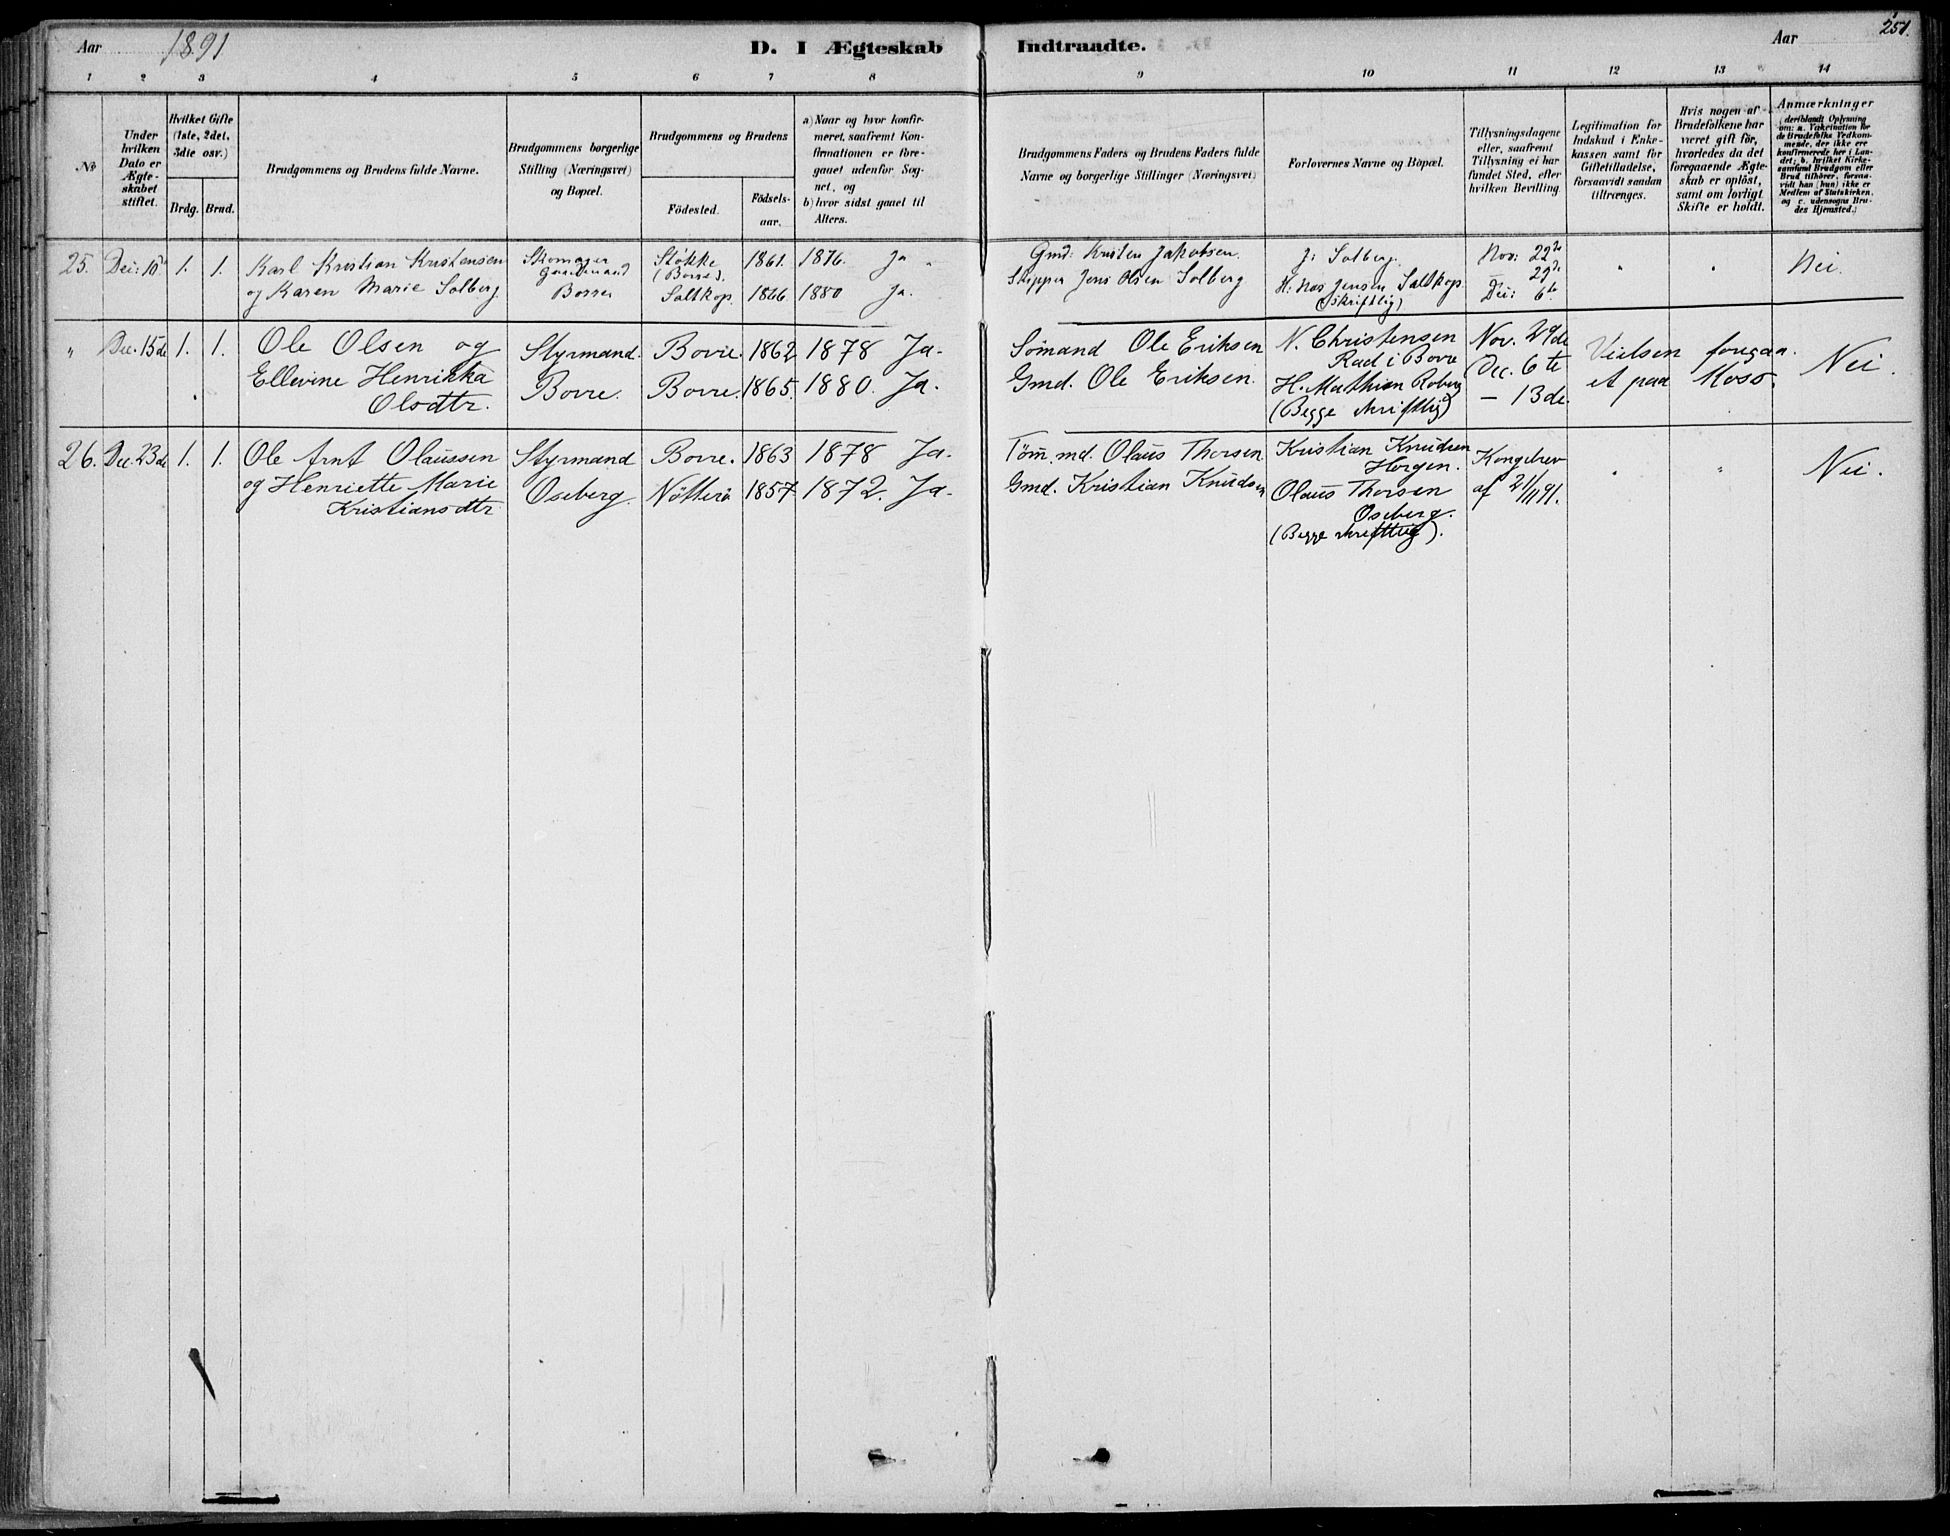 Aar 1891 D. I Ægteskab Indtraadte. Aar 251.
1 2 3 4 5 6 7 8 9 10 11 12 13 14
No
Under hvilken Dato er Ægteskabet stiftet.
Hvilket Gifte (1ste, 2det, 3die osv.)
Brdg. Brud.
Brudgommens og Brudens fulde Navne.
Brudgommens borgerlige Stilling (Næringsvei) og Bopæl.
Brudgommens og Brudens
Födested.
Födsels-aar.
a) Naar og hvor konfirmeret, saafremt Konfirmationen er foregaaet udenfor Sognet, og
b) hvor sidst gaaet til Alters.
Brudgommens Faders og Brudens Faders fulde Navne og borgerlige Stillinger (Næringsvei)
Forlovernes Navne og Bopæl.
Tillysningsdagene eller, saafremt Tillysning ei har fundet Sted, efter hvilken Bevilling.
Legitimation for Indskud i Enkekassen samt for Giftetilladelse, forsaavidt saadan tiltrænges.
Hvis nogen af Brudefolkene har været gift för, hvorledes da det foregaaende Ægteskab er oplöst, samt om lovligt Skifte er holdt.
Anmærkninger
(deriblandt Oplysning om: a. Vakcination for de Brudefolks Vedkommende, der ikke ere konfirmerede her i Landet; b. hvilket Kirkesamfund Brudgom eller Brud tilhörer, forsaavidt han (hun) ikke er Medlem af Statskirken, og c. udensogns Brudes Hjemsted.)
25. Dec: 10de 1. 1. Karl Kristian Kristensen Skomager Stokke 1861. 1876. Ja Gmd: Kristen Jakobsen. J: Solberg. Nov: 22de " . Nei.
Gaardmand (Borre). 29de
og Karen Marie Solberg. Borre Saltkop. 1866 1880 Ja. Skipper Jens Olsen Solberg H: Jensen Saltkop Dec: 6te
(skriftlig)
" Dec. 15de 1. 1. Ole Olsen og Styrmand. Borre. 1862 1878 Ja. Sömand Ole Eriksen N. Christensen Nov. 29de Vielsen foregaa-
Rad i Borre
Ellevine Henrikka Borre. Borre. 1865. 1880. Ja. Gmd. Ole Eriksen. H. Mathias Roberg Dec. 6te et paa Moss. Nei.
Olsdtr. (Begge skriftlig) — 13de.
26. Dec. 23de 1. 1. Ole Arnt Olaussen Styrmand Borre. 1863 1878 Ja. Töm.md. Olaus Thorsen. Kristian Knudsen Kongebrev . " Nei.
Horgen.
og Henriette Marie Oseberg. Nötterö 1857 1872. Ja. Gmd. Kristian Knudsen Olaus Thorsen af 21/11 91.
Kristiansdtr. Oseberg.
(Begge skriftlig).